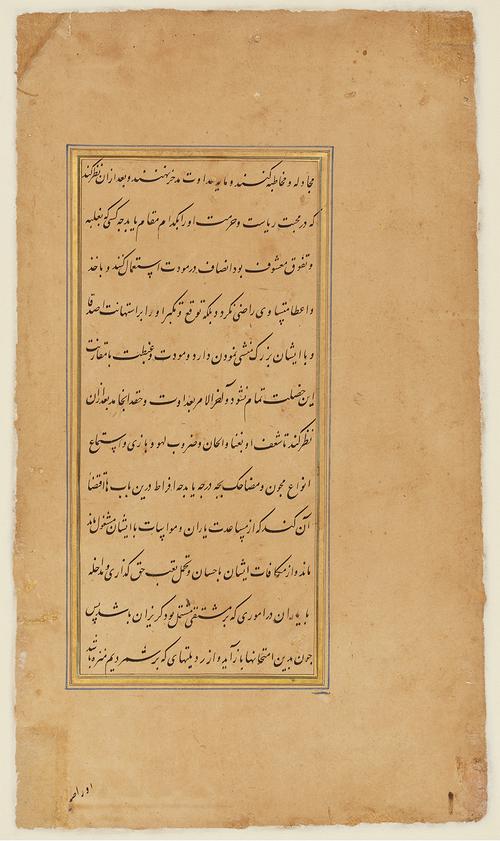 مجادله و مخاطبه کنند و مایه عداوت مدخر نهند و بعد ازان نظر کند
که در محبت ریاست و حرمت او را بکدام مقام یابد چه کسی که بغلبه
و تفوق مشعوف بود انصاف در مودت استعمال نکند و باخذ
و اعطا متساوی راضی نگردد بلکه توقع و تکبر او را بر استهانت اصدقا
و با ایشان بزرگ منشی نمودن دارد و مودت و غبطت با مقارنت
این خصلت تمام نشود و لا آخر الامر بعداوت و حقد انجامد بعد ازان
نظر کند تا شعف او بغنا و الحان و ضروب لهو و بازی و استماع
انواع مجون و مضاحک بچه درجه یابد چه افراط درین باب اقتضا
آن کند که از مساعدت یاران و مواسات با ایشان مشغول ماند
ماند و از مکافات ایشان باحسان و تحمل تعب حق گذاری و مداخله
با یاران در اموری که بر مشقتی مشتمل بود گریزان باشد پس
چون بدین امتحانها باز آید و از رذیلتهای که بر شمردیم منزه باشد
او را